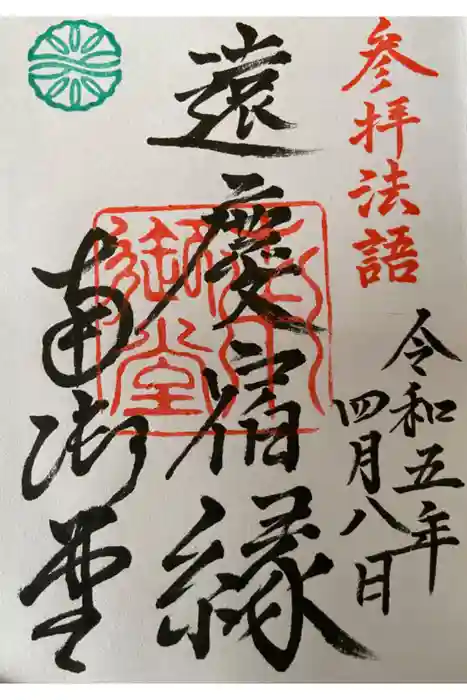 参拝法語
令和五年
四月八日
遠慶宿縁
南御堂
御堂